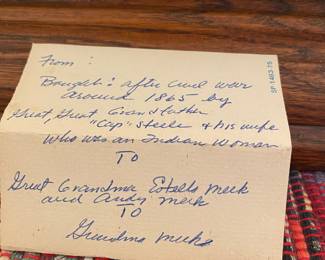 From:
Bought: after civil war
around 1865 by
Great, Great Grandfather
"Cap" Steele & his wife
who was an Indian Woman
TO
Great Grandma Estella Meek
and Andy Meek
TO
Grandma Meeks
SF-1463-75